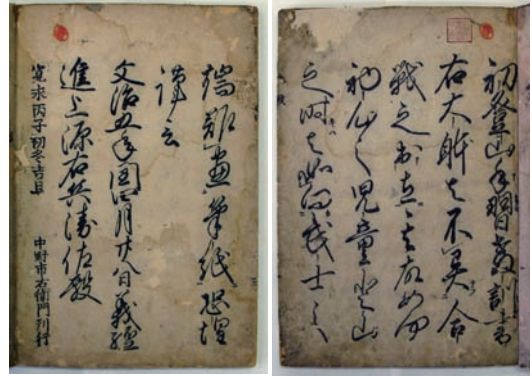 初登山手習教訓書
右大躰者不異合
戰之出立其故如何
初心之児童登山
之時者如向武士之
端難盡筆紙恐惶
謹言
文治五年閏四月廿八日義經
進上源右兵衛佐殿
寛永丙子初冬吉旦
中野市右衛門刊行